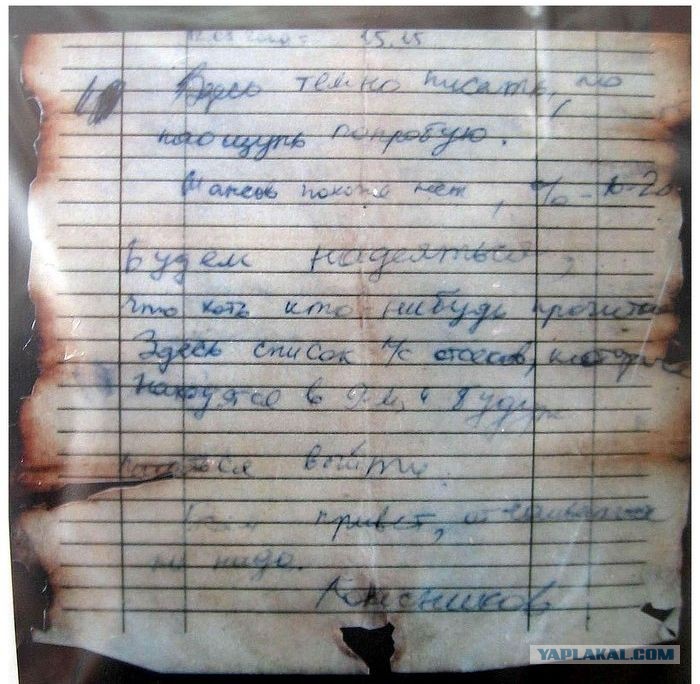 12.08.2000 г. 15.15
Здесь темно писать, но
наощупь попробую.
Шансов похоже нет, % - 10-20
Будем надеяться,
что хоть кто-нибудь прочитает
Здесь список л/с отсеков, которые
находятся в 9-м и будут
пытаться выйти.
Всем привет, отчаиваться
не надо.
Колесников
YAPLAKAL.COM